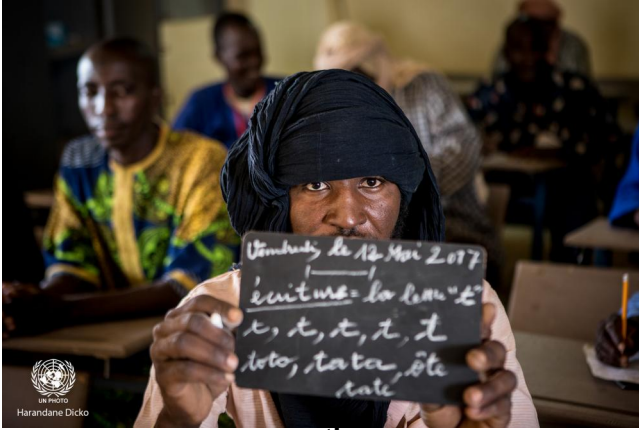 Vendredi, le 12 Mai 2017
écriture = la lettre "t"
t, t, t, t, t
toto, tata, ôte
tate
UN PHOTO
Harandane Dicko